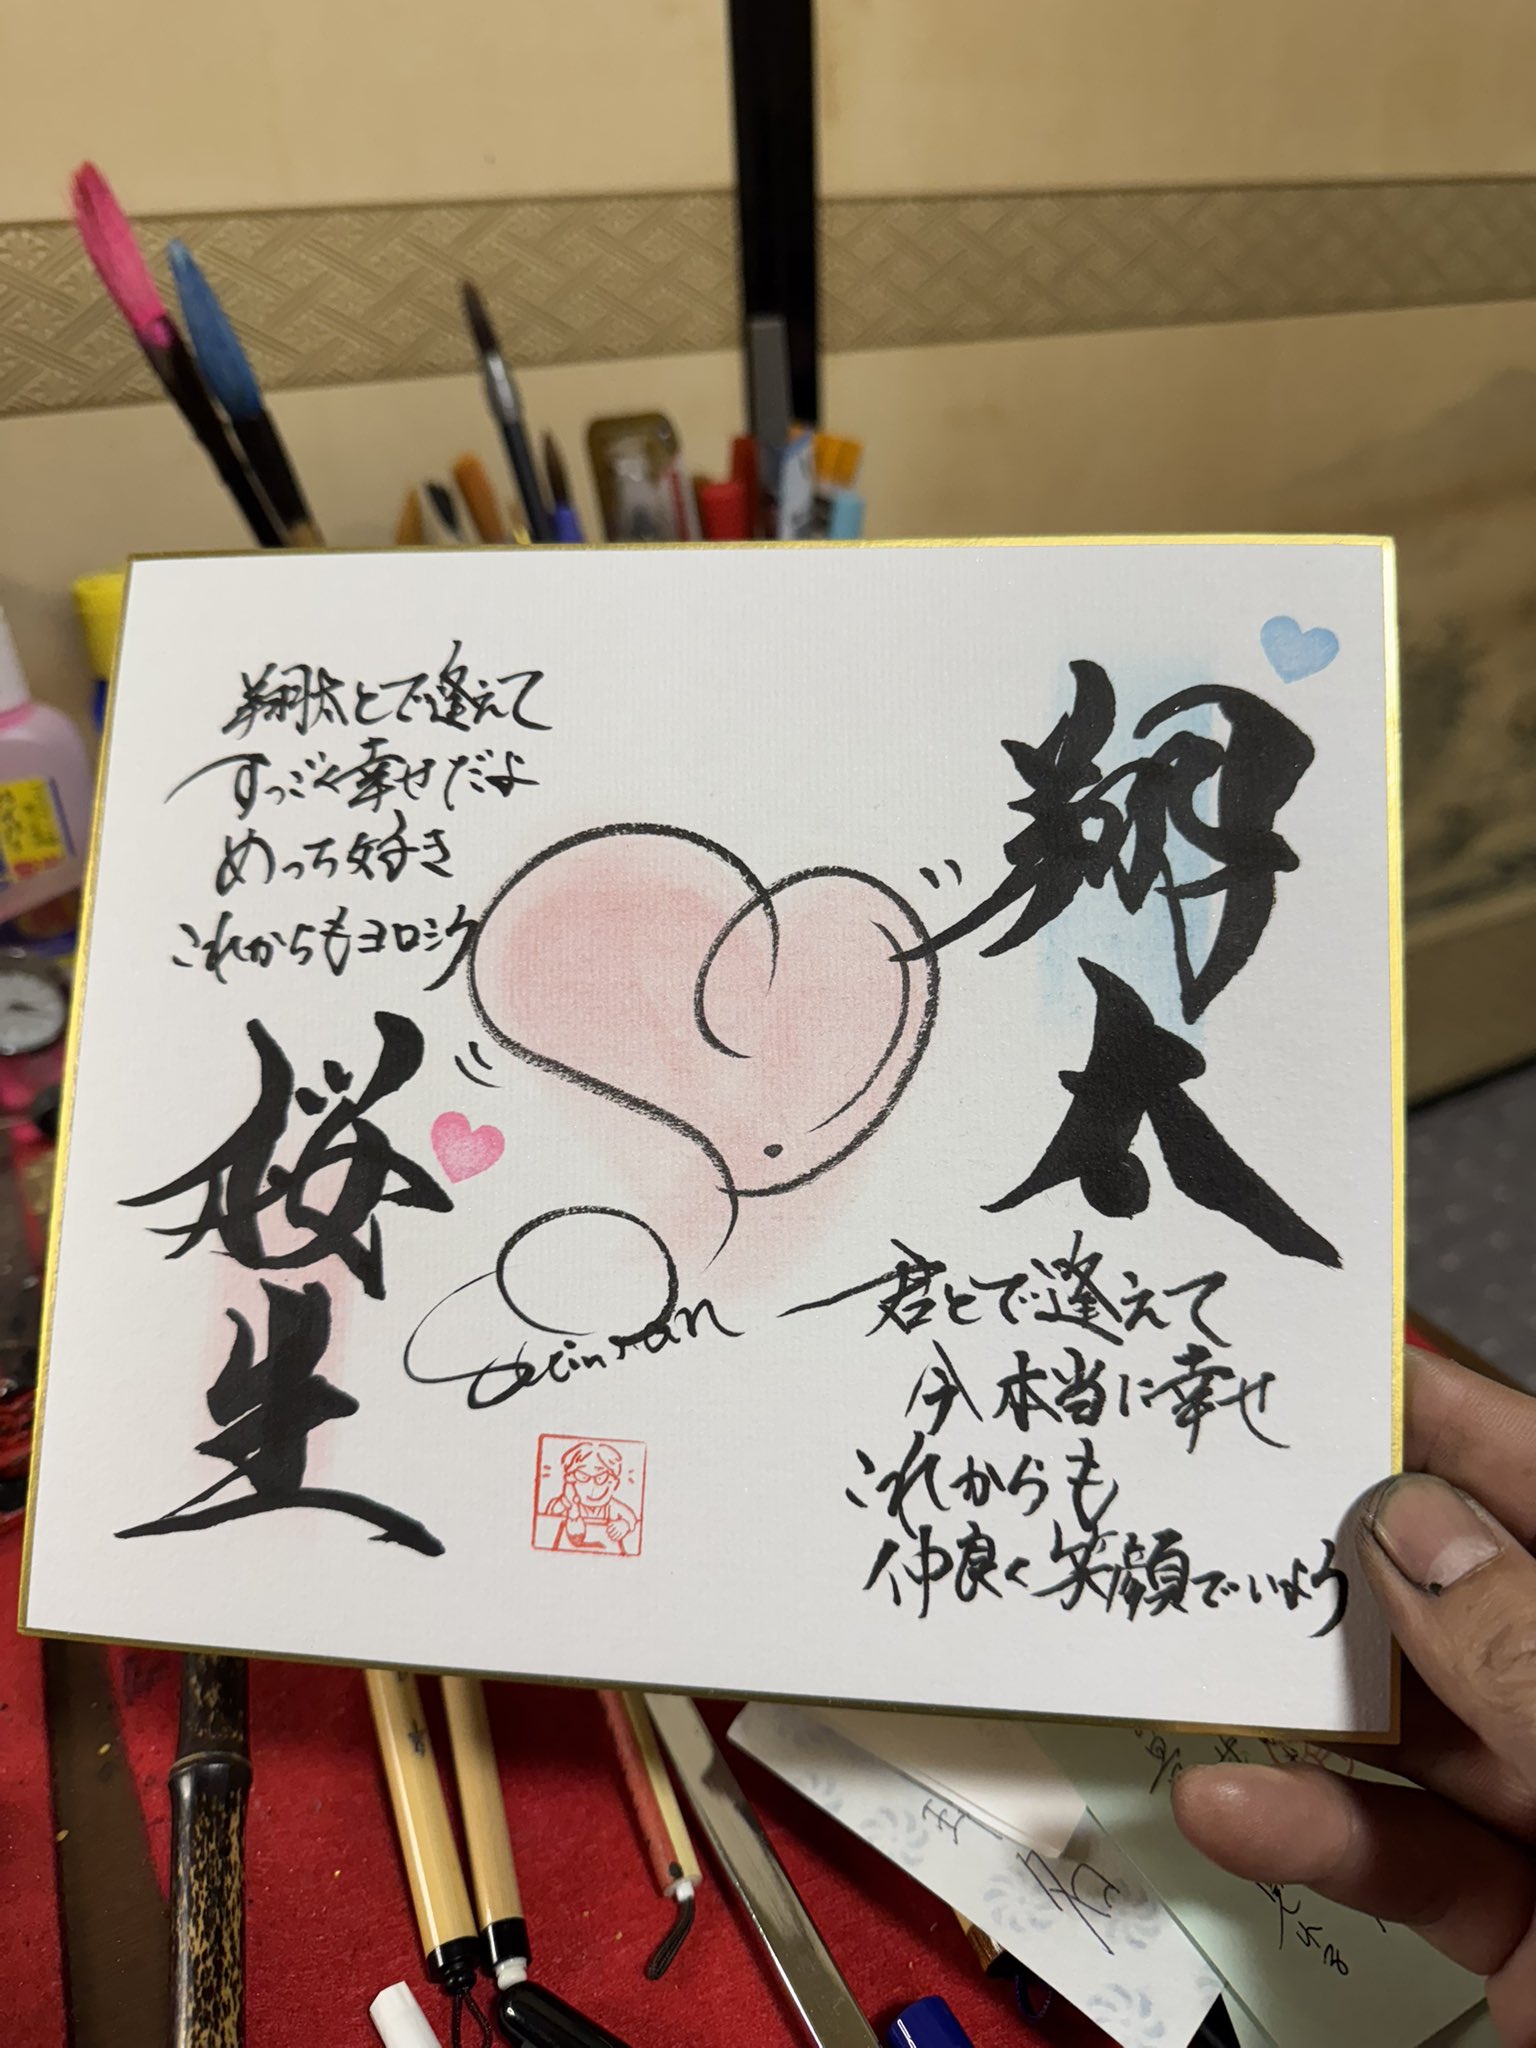 翔太
翔太とで逢えて
すっごく幸せだよ
めっち好き
これからもヨロシク
桜生
君とで逢えて
本当に幸せ
これからも
仲良く笑顔でいよう